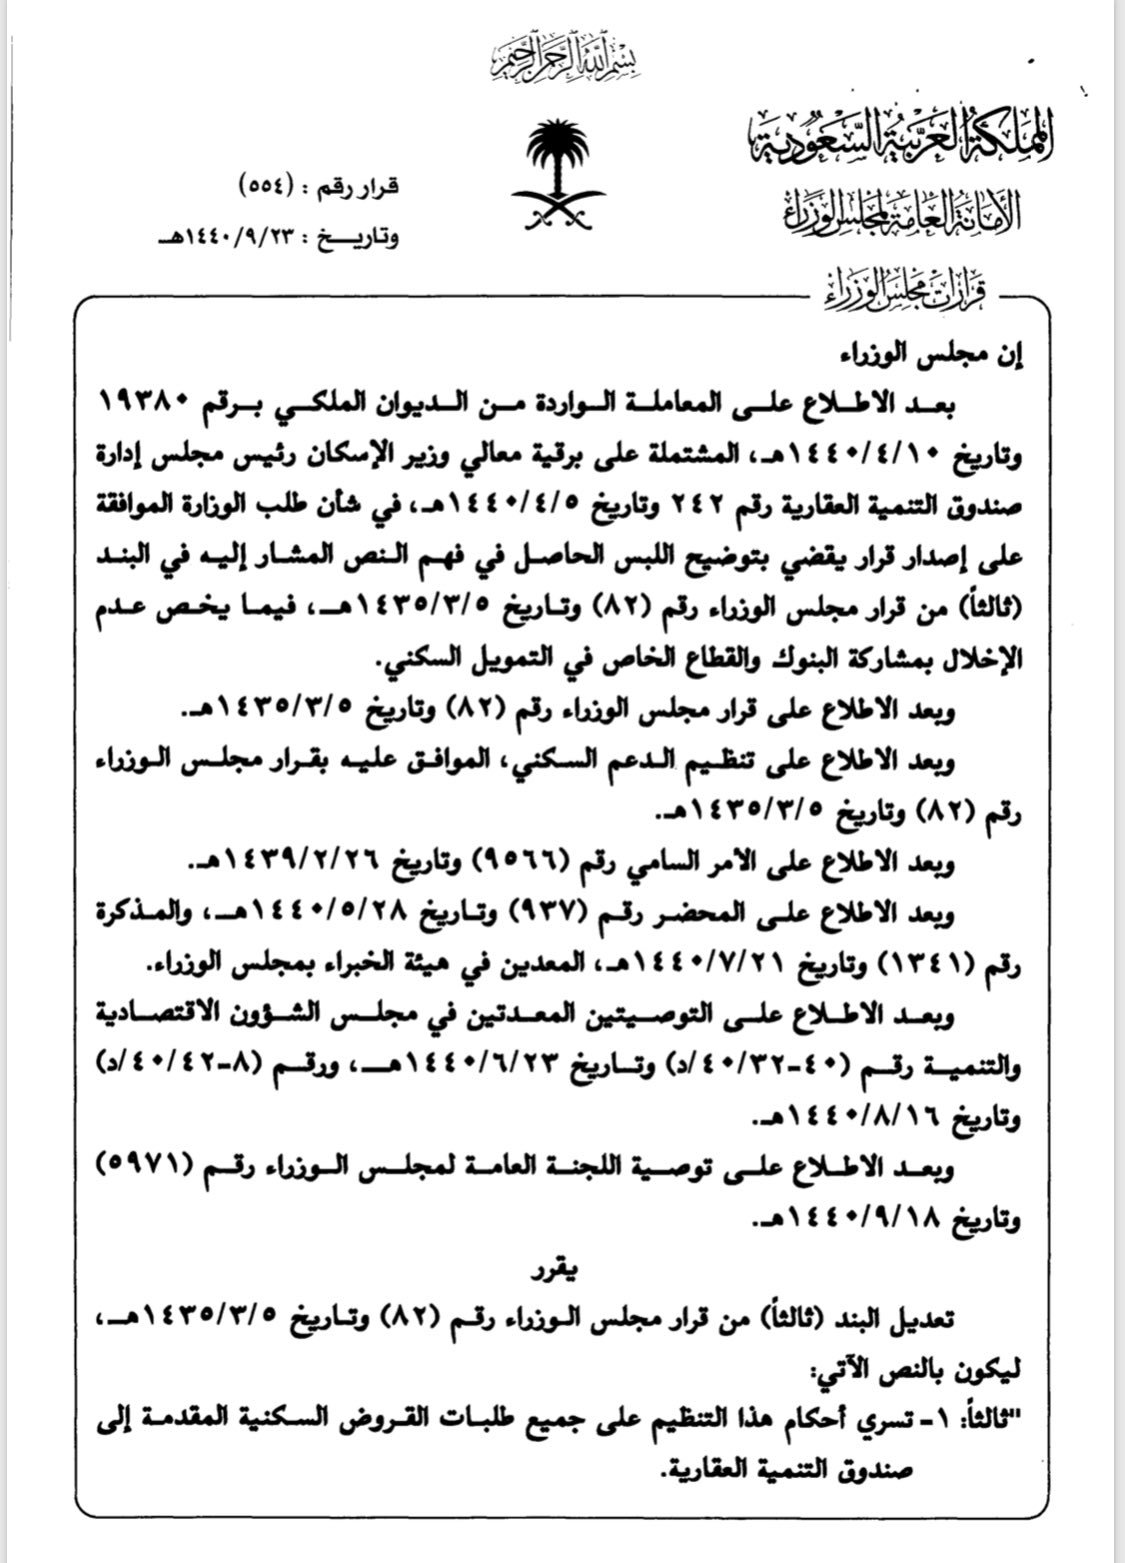 بسم الله الرحمن الرحيم
المملكة العربية السعودية
الأمانة العامة لمجلس الوزراء
قرار رقم : (٥٥٤)
وتاريـــخ : ١٤٤٠/٩/٢٣هـ
قرارات مجلس الوزراء
إن مجلس الوزراء
بعـد الاطـلاع علـى المعاملـة الـواردة مـن الـديوان الملكـي بـرقم ١٩٣٨٠
وتاريخ ١٤٤٠/٤/١٠هـ، المشتملة على برقية معالي وزير الإسكان رئيس مجلس إدارة
صندوق التنمية العقارية رقم ٢٤٢ وتاريخ ١٤٤٠/٤/٥هـ، في شأن طلب الوزارة الموافقة
على إصدار قرار يقضي بتوضيح اللبس الحاصـل في فهـم الـنص المشـار إليـه في البنـد
(ثالثاً) من قرار مجلس الوزراء رقم (٨٢) وتـاريخ ١٤٣٥/٣/٥هـ، فيمـا يخـص عـدم
الإخلال بمشاركة البنوك والقطاع الخاص في التمويل السكني.
وبعد الاطلاع على قرار مجلس الوزراء رقم (٨٢) وتاريخ ١٤٣٥/٣/٥هـ.
وبعد الاطلاع على تنظـيم الـدعم السـكني، الموافـق عليـه بقـرار مجلـس الـوزراء
رقم (٨٢) وتاريخ ١٤٣٥/٣/٥هـ.
وبعد الاطلاع على الأمر السامي رقم (٩٥٦٦) وتاريخ ١٤٣٩/٢/٢٦هـ.
وبعد الاطلاع علـى المحضـر رقـم (٩٣٧) وتـاريخ ١٤٤٠/٥/٢٨هـ، والمـذكرة
رقم (١٣٤١) وتاريخ ١٤٤٠/٧/٢١هـ، المعدين في هيئة الخبراء بمجلس الوزراء.
وبعـد الاطـلاع علـى التوصـيتين المعـدتين في مجلـس الشـؤون الاقتصـادية
والتنميـة رقـم (٤٠-٤٠/٣٢/د) وتـاريخ ١٤٤٠/٦/٢٣هـ، ورقـم (٨-٤٠/٤٢/د)
وتاريخ ١٤٤٠/٨/١٦هـ.
وبعـد الاطـلاع علـى توصـية اللجنـة العامـة لمجلـس الـوزراء رقـم (٥٩٧١)
وتاريخ ١٤٤٠/٩/١٨هـ.
يقرر
تعديل البند (ثالثاً) من قرار مجلس الـوزراء رقـم (٨٢) وتـاريخ ١٤٣٥/٣/٥هـ،
ليكون بالنص الآتي:
"ثالثاً: ١- تسري أحكام هذا التنظيم على جميع طلبـات القـروض السـكنية المقدمـة إلى
صندوق التنمية العقارية.